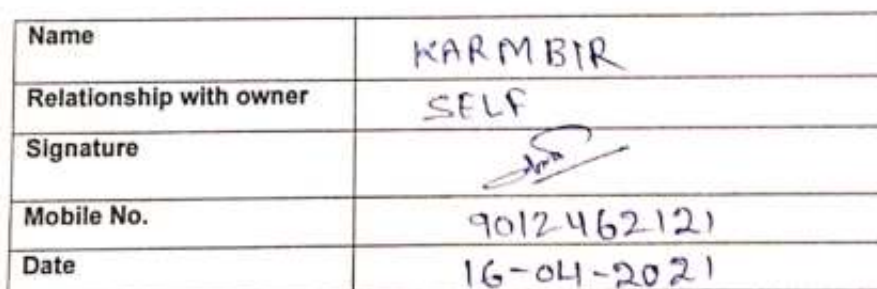 Name KARMBIR
Relationship with owner SELF
Signature
Mobile No. 9012462121
Date 16-04-2021